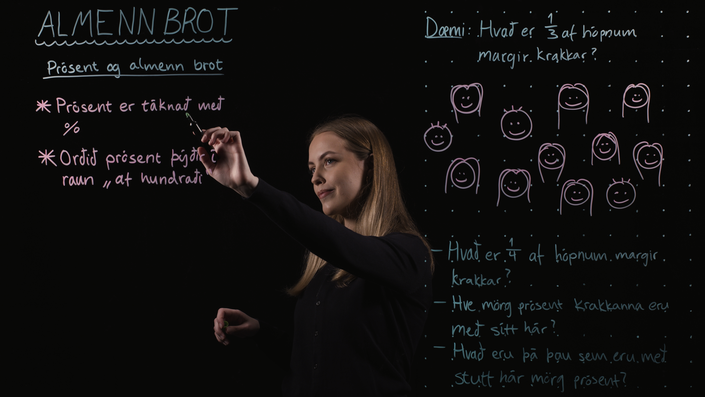 ALMENN BROT
Prósent og almenn brot
* Prósent er táknað með
%
* Orðið prósent þýðir í
raun „af hundraði
Dæmi: Hvað er 1/3 af hópnum
margir krakkar?
- Hvað er 1/4 af hópnum margir
krakkar?
- Hve mörg prósent krakkanna eru
með sítt hár?
- Hvað eru þá þau sem eru með
stutt hár mörg prósent?